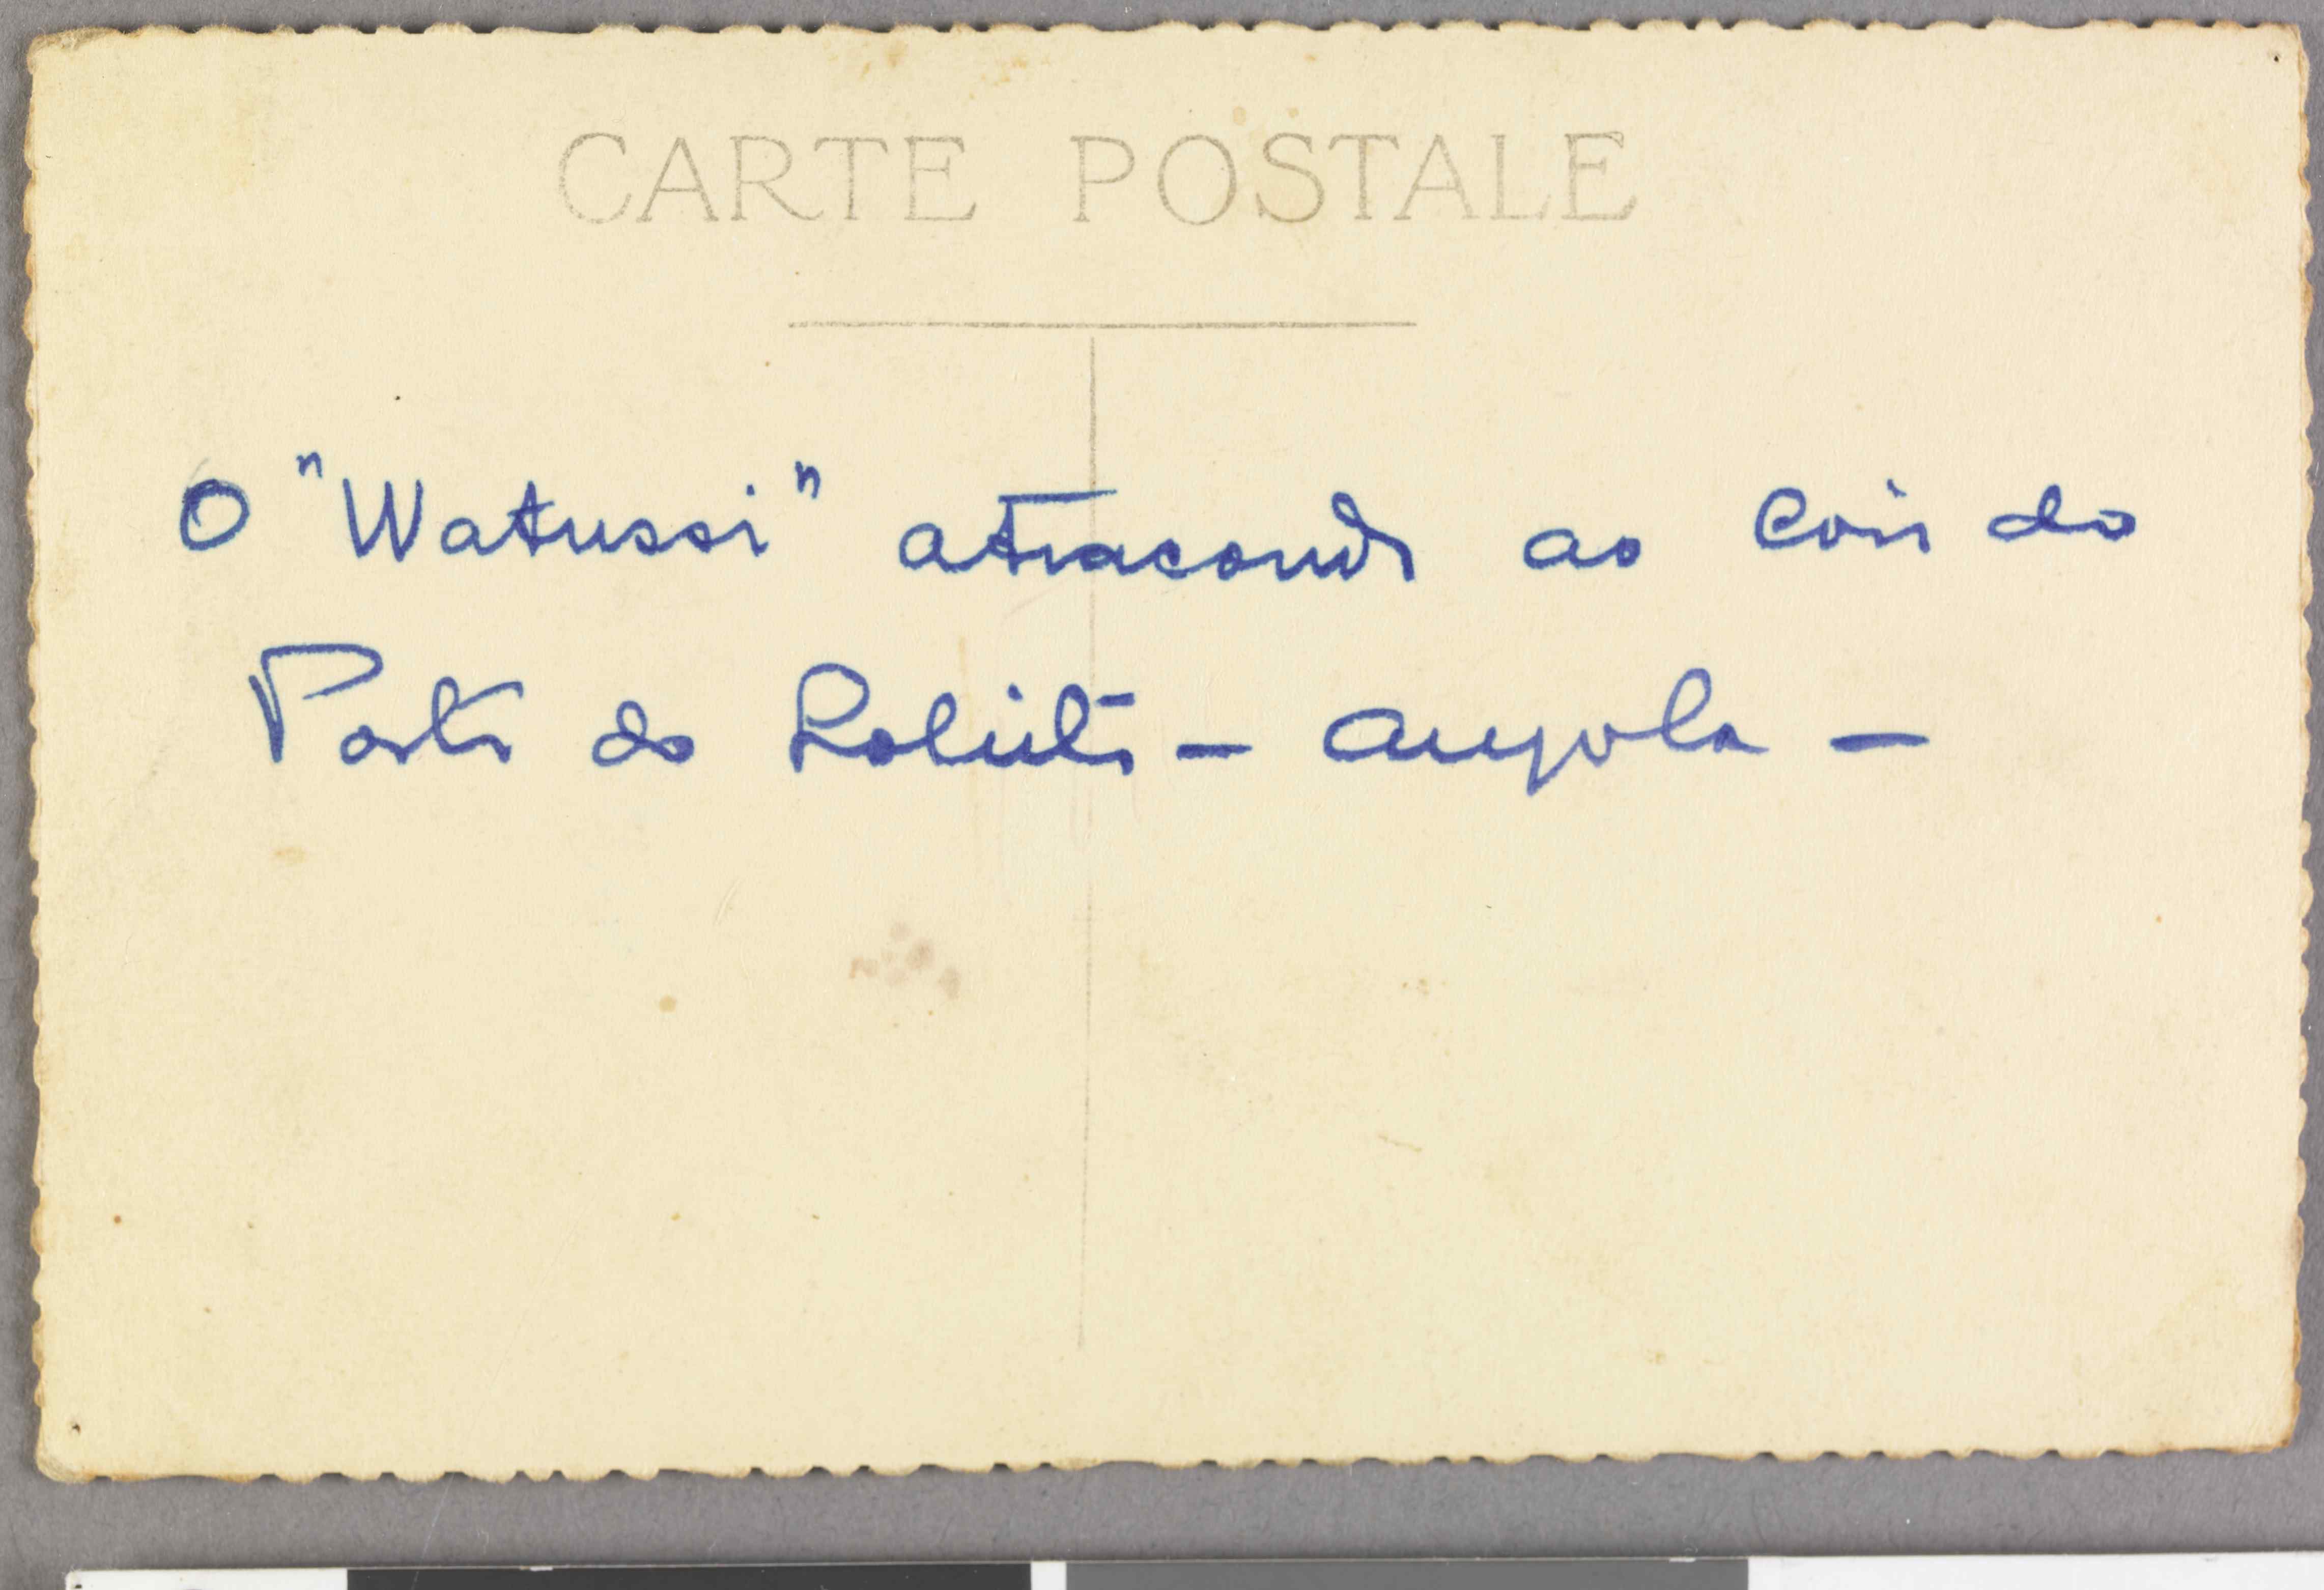 CARTE POSTALE
O "Watussi" atracando ao Cais do
Porto do Lobito - Angola -